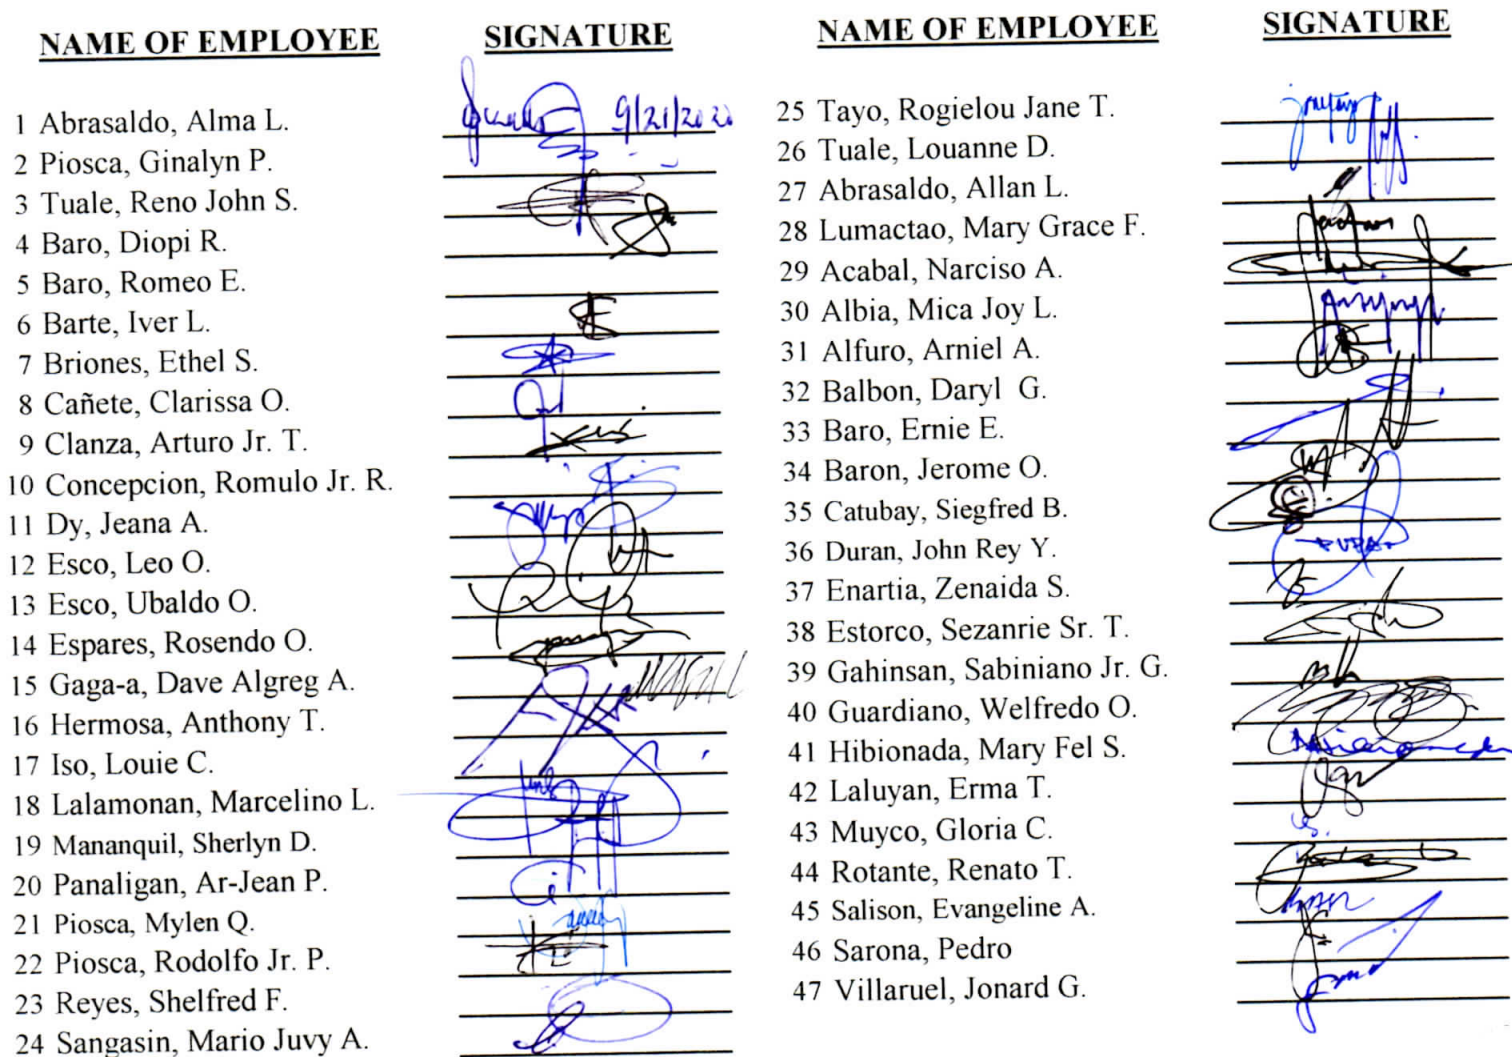 NAME OF EMPLOYEE SIGNATURE
1 Abrasaldo, Alma L. 9/21/202
2 Piosca, Ginalyn P.
3 Tuale, Reno John S.
4 Baro, Diopi R.
5 Baro, Romeo E.
6 Barte, Iver L.
7 Briones, Ethel S.
8 Cañete, Clarissa O.
9 Clanza, Arturo Jr. T.
10 Concepcion, Romulo Jr. R.
11 Dy, Jeana A.
12 Esco, Leo O.
13 Esco, Ubaldo O.
14 Espares, Rosendo O.
15 Gaga-a, Dave Algreg A.
16 Hermosa, Anthony T.
17 Iso, Louie C.
18 Lalamonan, Marcelino L.
19 Mananquil, Sherlyn D.
20 Panaligan, Ar-Jean P.
21 Piosca, Mylen Q.
22 Piosca, Rodolfo Jr. P.
23 Reyes, Shelfred F.
24 Sangasin, Mario Juvy A.
NAME OF EMPLOYEE SIGNATURE
25 Tayo, Rogielou Jane T.
26 Tuale, Louanne D.
27 Abrasaldo, Allan L.
28 Lumactao, Mary Grace F.
29 Acabal, Narciso A.
30 Albia, Mica Joy L.
31 Alfuro, Arniel A.
32 Balbon, Daryl G.
33 Baro, Ernie E.
34 Baron, Jerome O.
35 Catubay, Siegfred B.
36 Duran, John Rey Y.
37 Enartia, Zenaida S.
38 Estorco, Sezanrie Sr. T.
39 Gahinsan, Sabiniano Jr. G.
40 Guardiano, Welfredo O.
41 Hibionada, Mary Fel S.
42 Laluyan, Erma T.
43 Muyco, Gloria C.
44 Rotante, Renato T.
45 Salison, Evangeline A.
46 Sarona, Pedro
47 Villaruel, Jonard G.